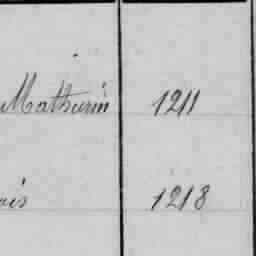 Mathurin 1211
ois 1218